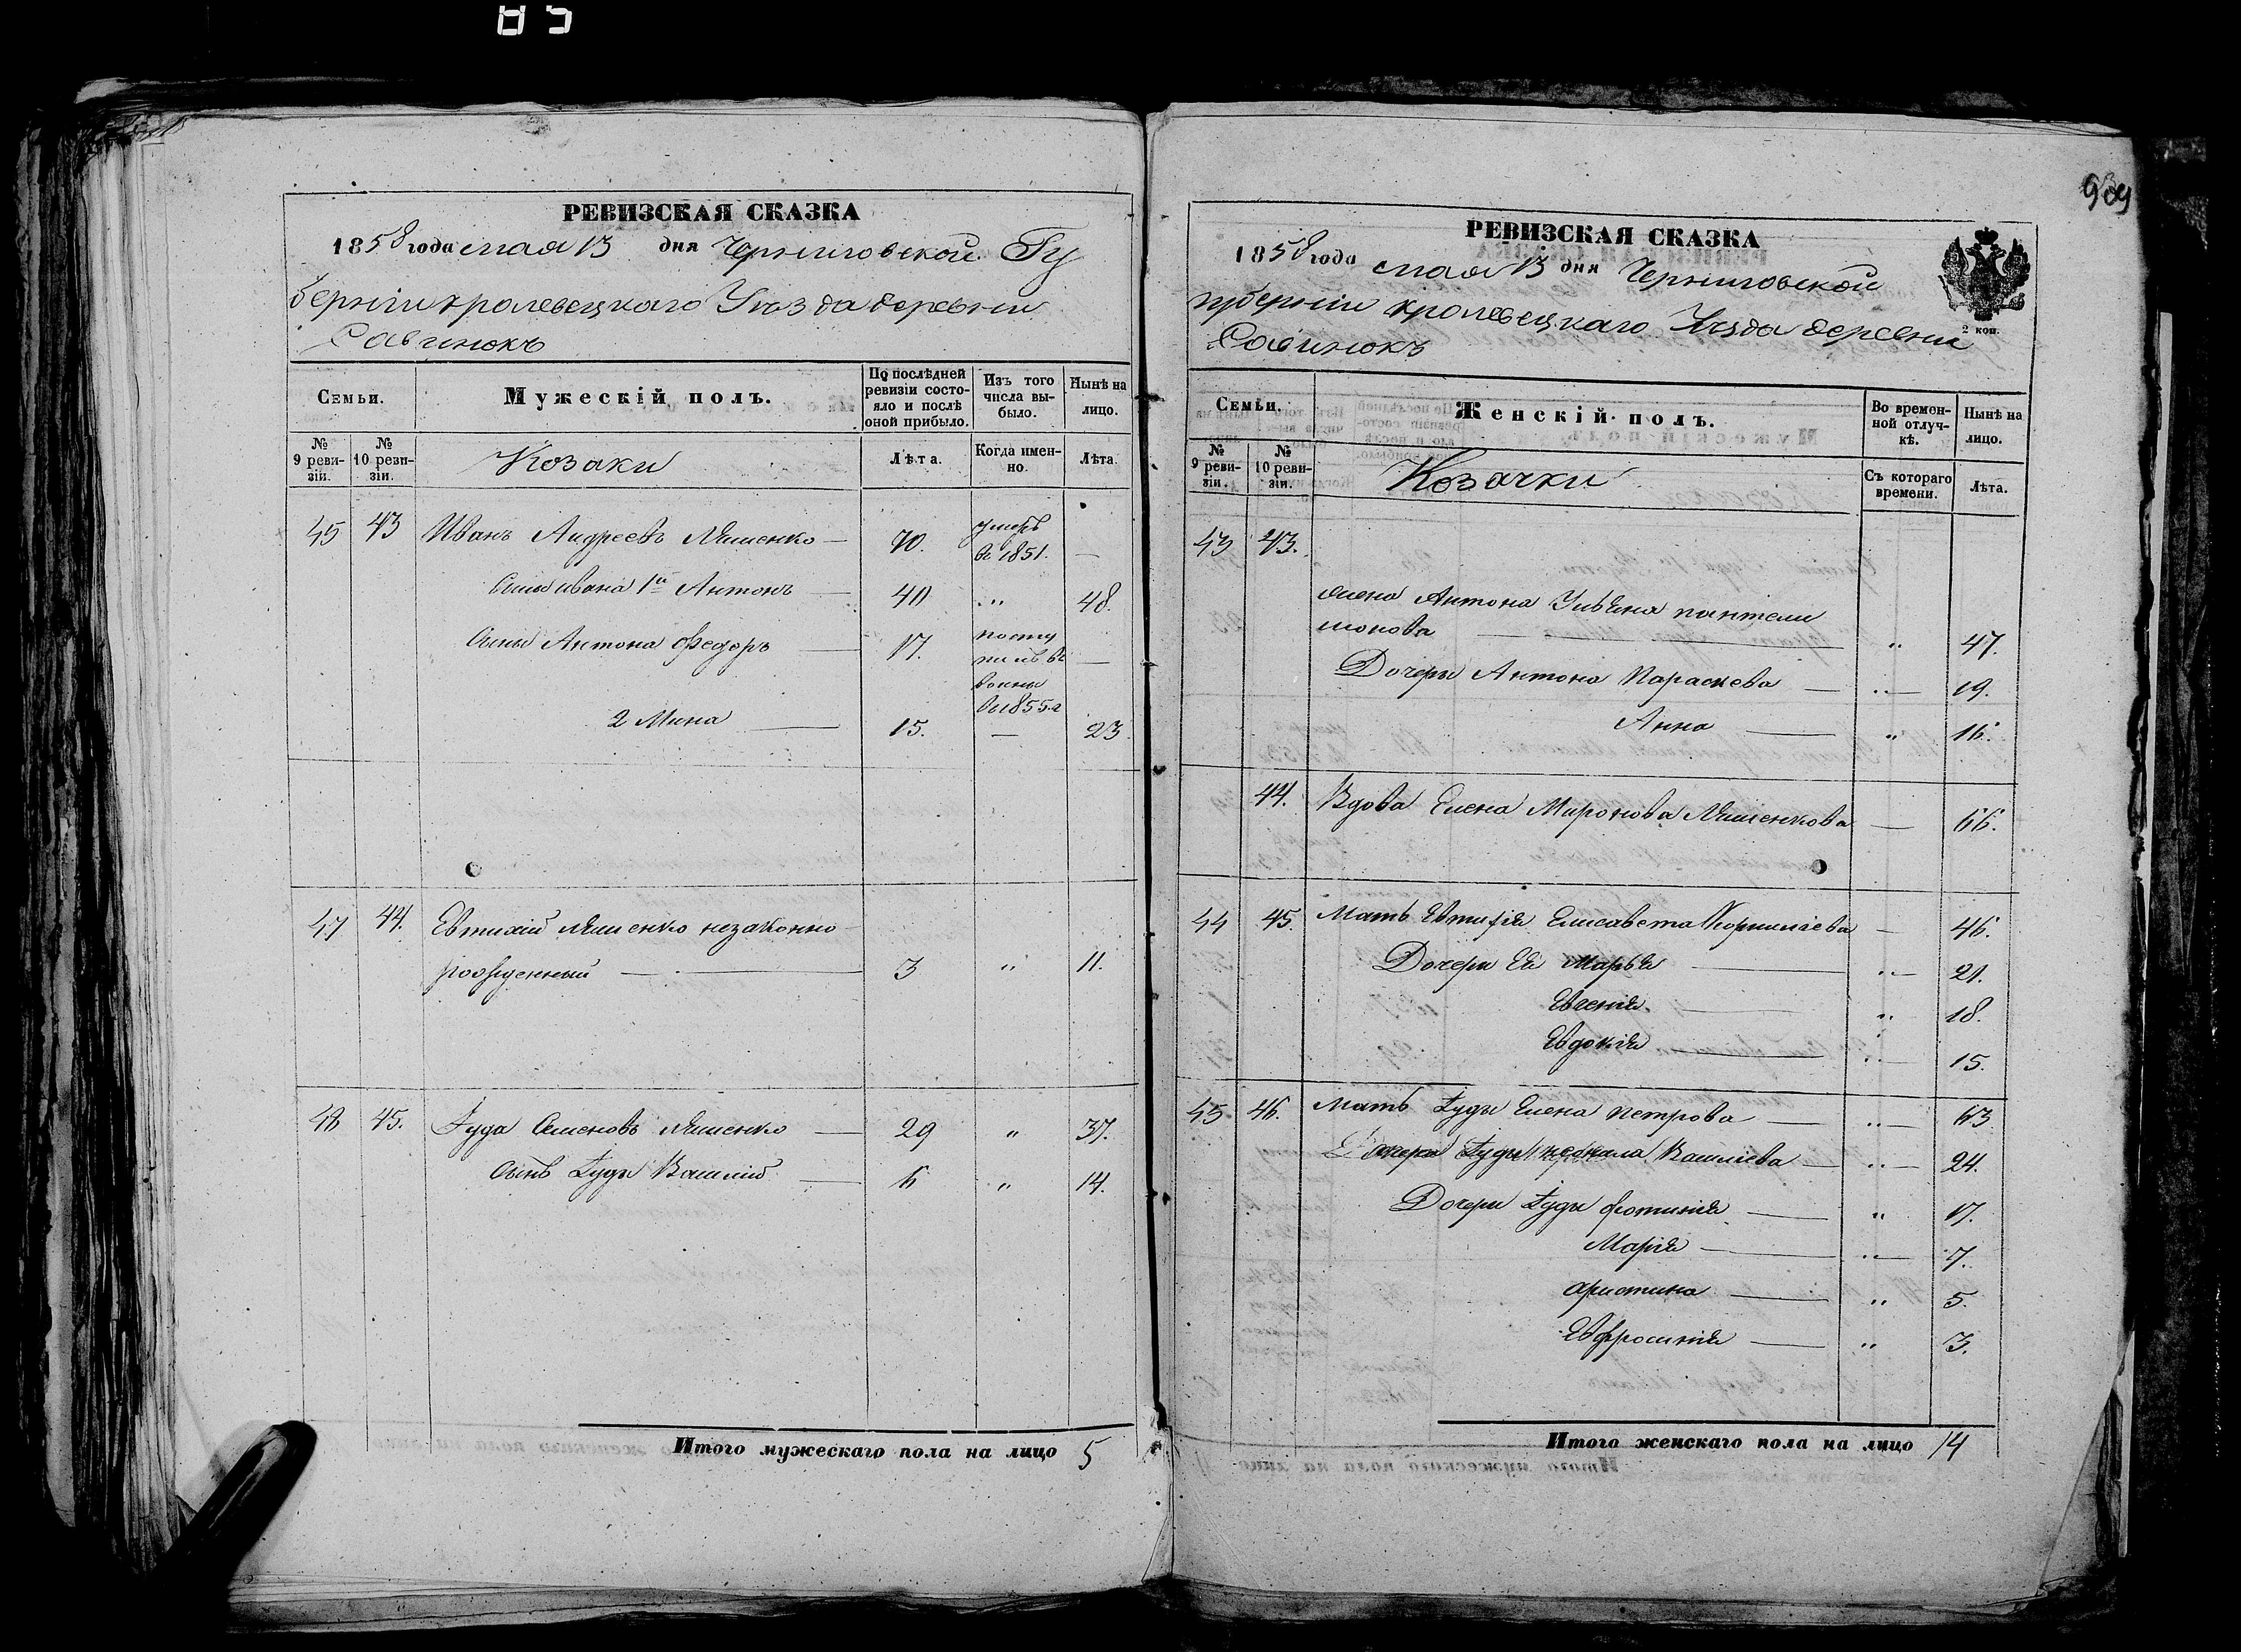 85
РЕВИЗСКАЯ СКАЗКА
1858 года мая 13 дня Черниговской Гу
берніи Кролевецкаго Уѣзда деревни
Савинокъ
Семьи.
Мужескій полъ.
По послѣдней ревизіи состояло и послѣ оной прибыло.
Изъ того числа выбыло.
Нынѣ на лицо.
№ 9 ревизіи.
№ 10 ревизіи.
Козаки
Лѣта.
Когда именно.
Лѣта.
45 43 Иванъ Андреевъ Ляшенко — 70. умеръ въ 1851. —
Сынъ Ивана 1й Антонъ — 40 „ 48.
Сыны Антона Федоръ — 17. посту
пилъ въ —
воины
въ 1855 г
2 Мина — 15. — 23
47 44. Евтихій Ляшенко незаконно
рожденный — 3 „ 11.
48 45. Іуда Семеновъ Ляшенко — 29 „ 37.
Сынъ Іуды Василій — 6 „ 14.
Итого мужескаго пола на лицо 5
909
РЕВИЗСКАЯ СКАЗКА
1858 года мая 13 дня Черниговской
губерніи Кролевецкаго Уѣзда деревни
Савинокъ
2 коп.
Семьи.
Женскій полъ.
Во временной отлучкѣ.
Нынѣ на лицо.
№ 9 ревизіи.
№ 10 ревизіи.
Козачки
Съ котораго времени.
Лѣта.
43 43.
Жена Антона Ульяна Пантели
монова — „ 47.
Дочери Антона Параскева — „ — 19.
Анна — „ 16.
44. Вдова Елена Миронова Ляшенкова — 66.
44 45. Мать Евтихія Елисавета Корнилiева — 46.
Дочери Ея Марья — „ — 21.
Евгенія — „ 18.
Евдокія — „ — 15.
45 46. Мать Іуды Елена Петрова — „ — 63
Іуды Василіева — „ — 24.
Дочери Іуды Фотинія — „ 17.
Марія — „ — 7.
Христина — „ 5.
Евфросинія — „ 3.
Итого женскаго пола на лицо 14